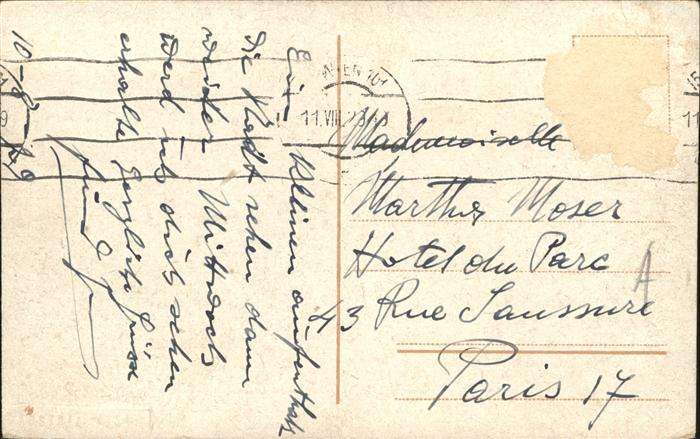 10-8-29
Ein kleinen aufenthalt
die Stadt sehen dann
weiter Mittwoch
werd ich dich sehen
erhalte herzliche Grüsse
11.VIII.2
Mademoiselle
Marthy Moser
Hotel du Parc
43 Rue Saussure
Paris 17
A